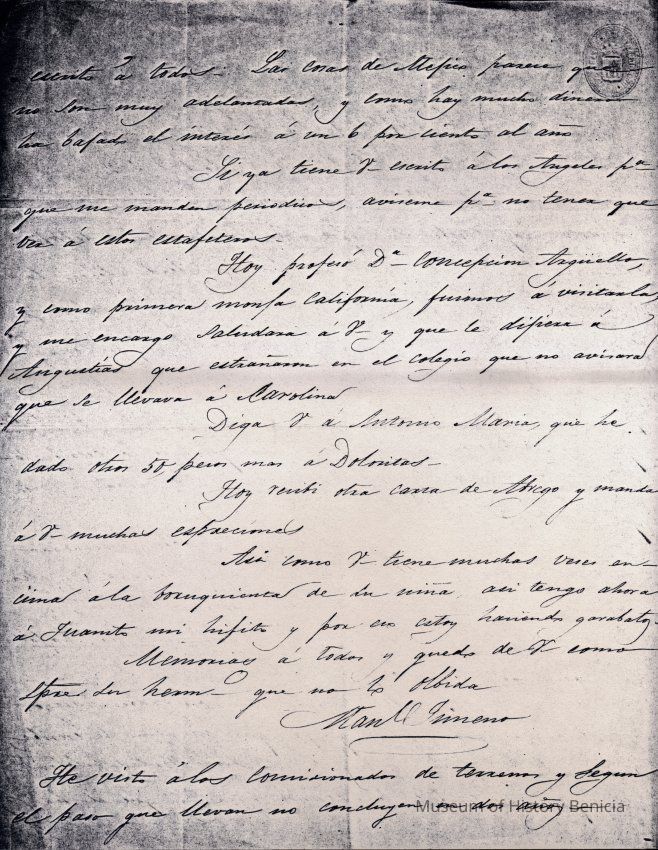 escrito á todos - Las cosas de Mejico parece que
no son muy adelantadas, y como hay mucho dinero
ha bajado el interés á un 6 por ciento al año
Si ya tiene V escrito á los Angeles pa
que me manden periodicos, aviseme pa no tener que
ver á estos estafeteros -
Hoy profesó Da Concepcion Arguello,
y como primera monja California, fuimos á visitarla,
y me encargo saludara á V y que le dijera á
Angustias que estrañaron en el colegio que no avisara
que se llevava á Carolina
Diga V á Antonio Maria, que he
dado otros 50 pesos mas á Doloritas -
Hoy recibi otra carta de Abrego y manda
á V muchas espreciones
Asi como V tiene muchas veses en-
cima á la de su niña, asi tengo ahora
á Juanito mi hijito y por eso estoy haciendo garabatos -
Memorias á todos y quedo de V como
spre su hermo que no lo olbida
Manl Jimeno
He visto á los comicionados de terrenos y segun
el paso que llevan no concluyen en dos años
Museum of History Benicia